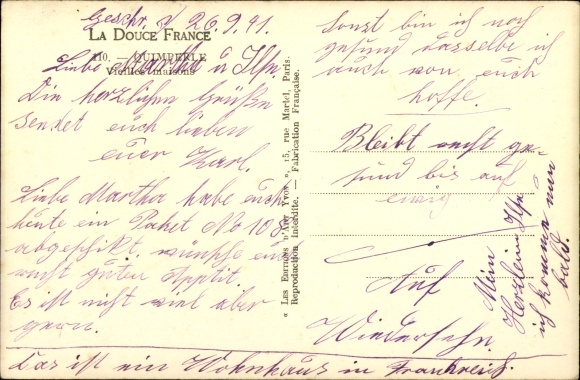 Geschr. d 26.9.41.
LA DOUCE FRANCE
110. — QUIMPERLÉ
Vieilles maisons
Liebe Martha u Ilse.
Die herzlichen Grüße
sendet euch lieben
euer Karl.
Liebe Martha habe euch
heute ein Paket No 108
abgeschikt, wünsche euch
recht guten Apptit.
Es ist nicht viel aber
gern.
« LES EDITIONS D'ART YVON », 15, rue Martel, Paris.
Reproduction interdite. — Fabrication Française.
Sonst bin ich noch
gesund dasselbe ich
auch von euch
hoffe.
Bleibt recht ge-
sund bis auf
ewig
Auf
Wiedersehn.
Mein
Herzlein Ilse
ich komme nun
bald.
Das ist ein Wohnhaus in Frankreich.